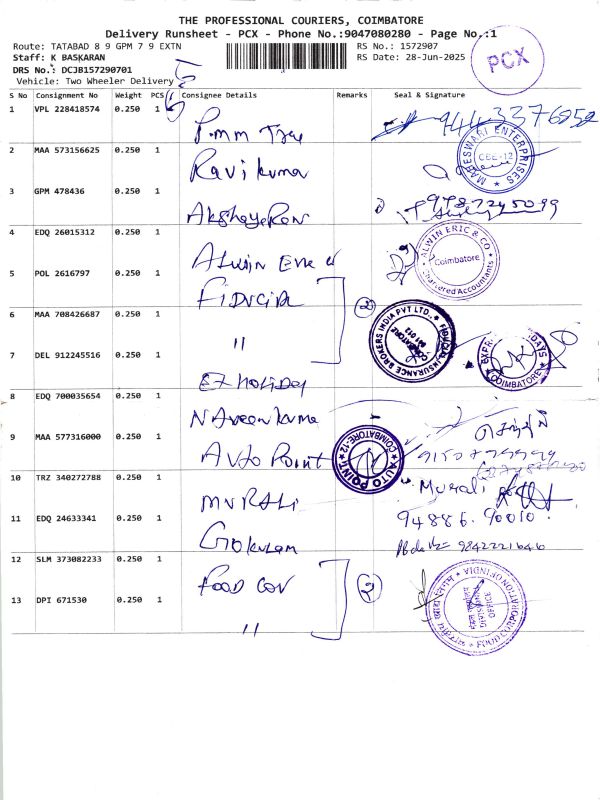 THE PROFESSIONAL COURIERS, COIMBATORE
Delivery Runsheet - PCX - Phone No.:9047080280 - Page No.:1
Route: TATABAD 8 9 GPM 7 9 EXTN
RS No.: 1572907
Staff: K BASKARAN
RS Date: 28-Jun-2025
PCX
DRS No.: DCJB157290701
Vehicle: Two Wheeler Delivery
S No Consignment No Weight PCS Consignee Details Remarks Seal & Signature
1 VPL 228418574 0.250 1
2 MAA 573156625 0.250 1 Ravi kuma
MAHESWARI ENTERPRISES CBE-12
3 GPM 478436 0.250 1
4 EDQ 26015312 0.250 1 Alwin Eric
ALWIN ERIC & CO Coimbatore Chartered Accountants
5 POL 2616797 0.250 1 FIDUCIA
2
6 MAA 708426687 0.250 1 "
FIDUCIA INSURANCE BROKERS INDIA PVT LTD., COIMBATORE 641 012
7 DEL 912245516 0.250 1 EX HOLIDAY
COIMBATORE
8 EDQ 700035654 0.250 1 Naveen kuma
9 MAA 577316000 0.250 1 AUTO POINT
AUTO POINT COIMBATORE-12
10 TRZ 340272788 0.250 1 MURALI
Murali
11 EDQ 24633341 0.250 1 Gokulam
94886 90010
9842221646
12 SLM 373082233 0.250 1 FOOD COR
2
13 DPI 671530 0.250 1 "
FOOD CORPORATION OF INDIA